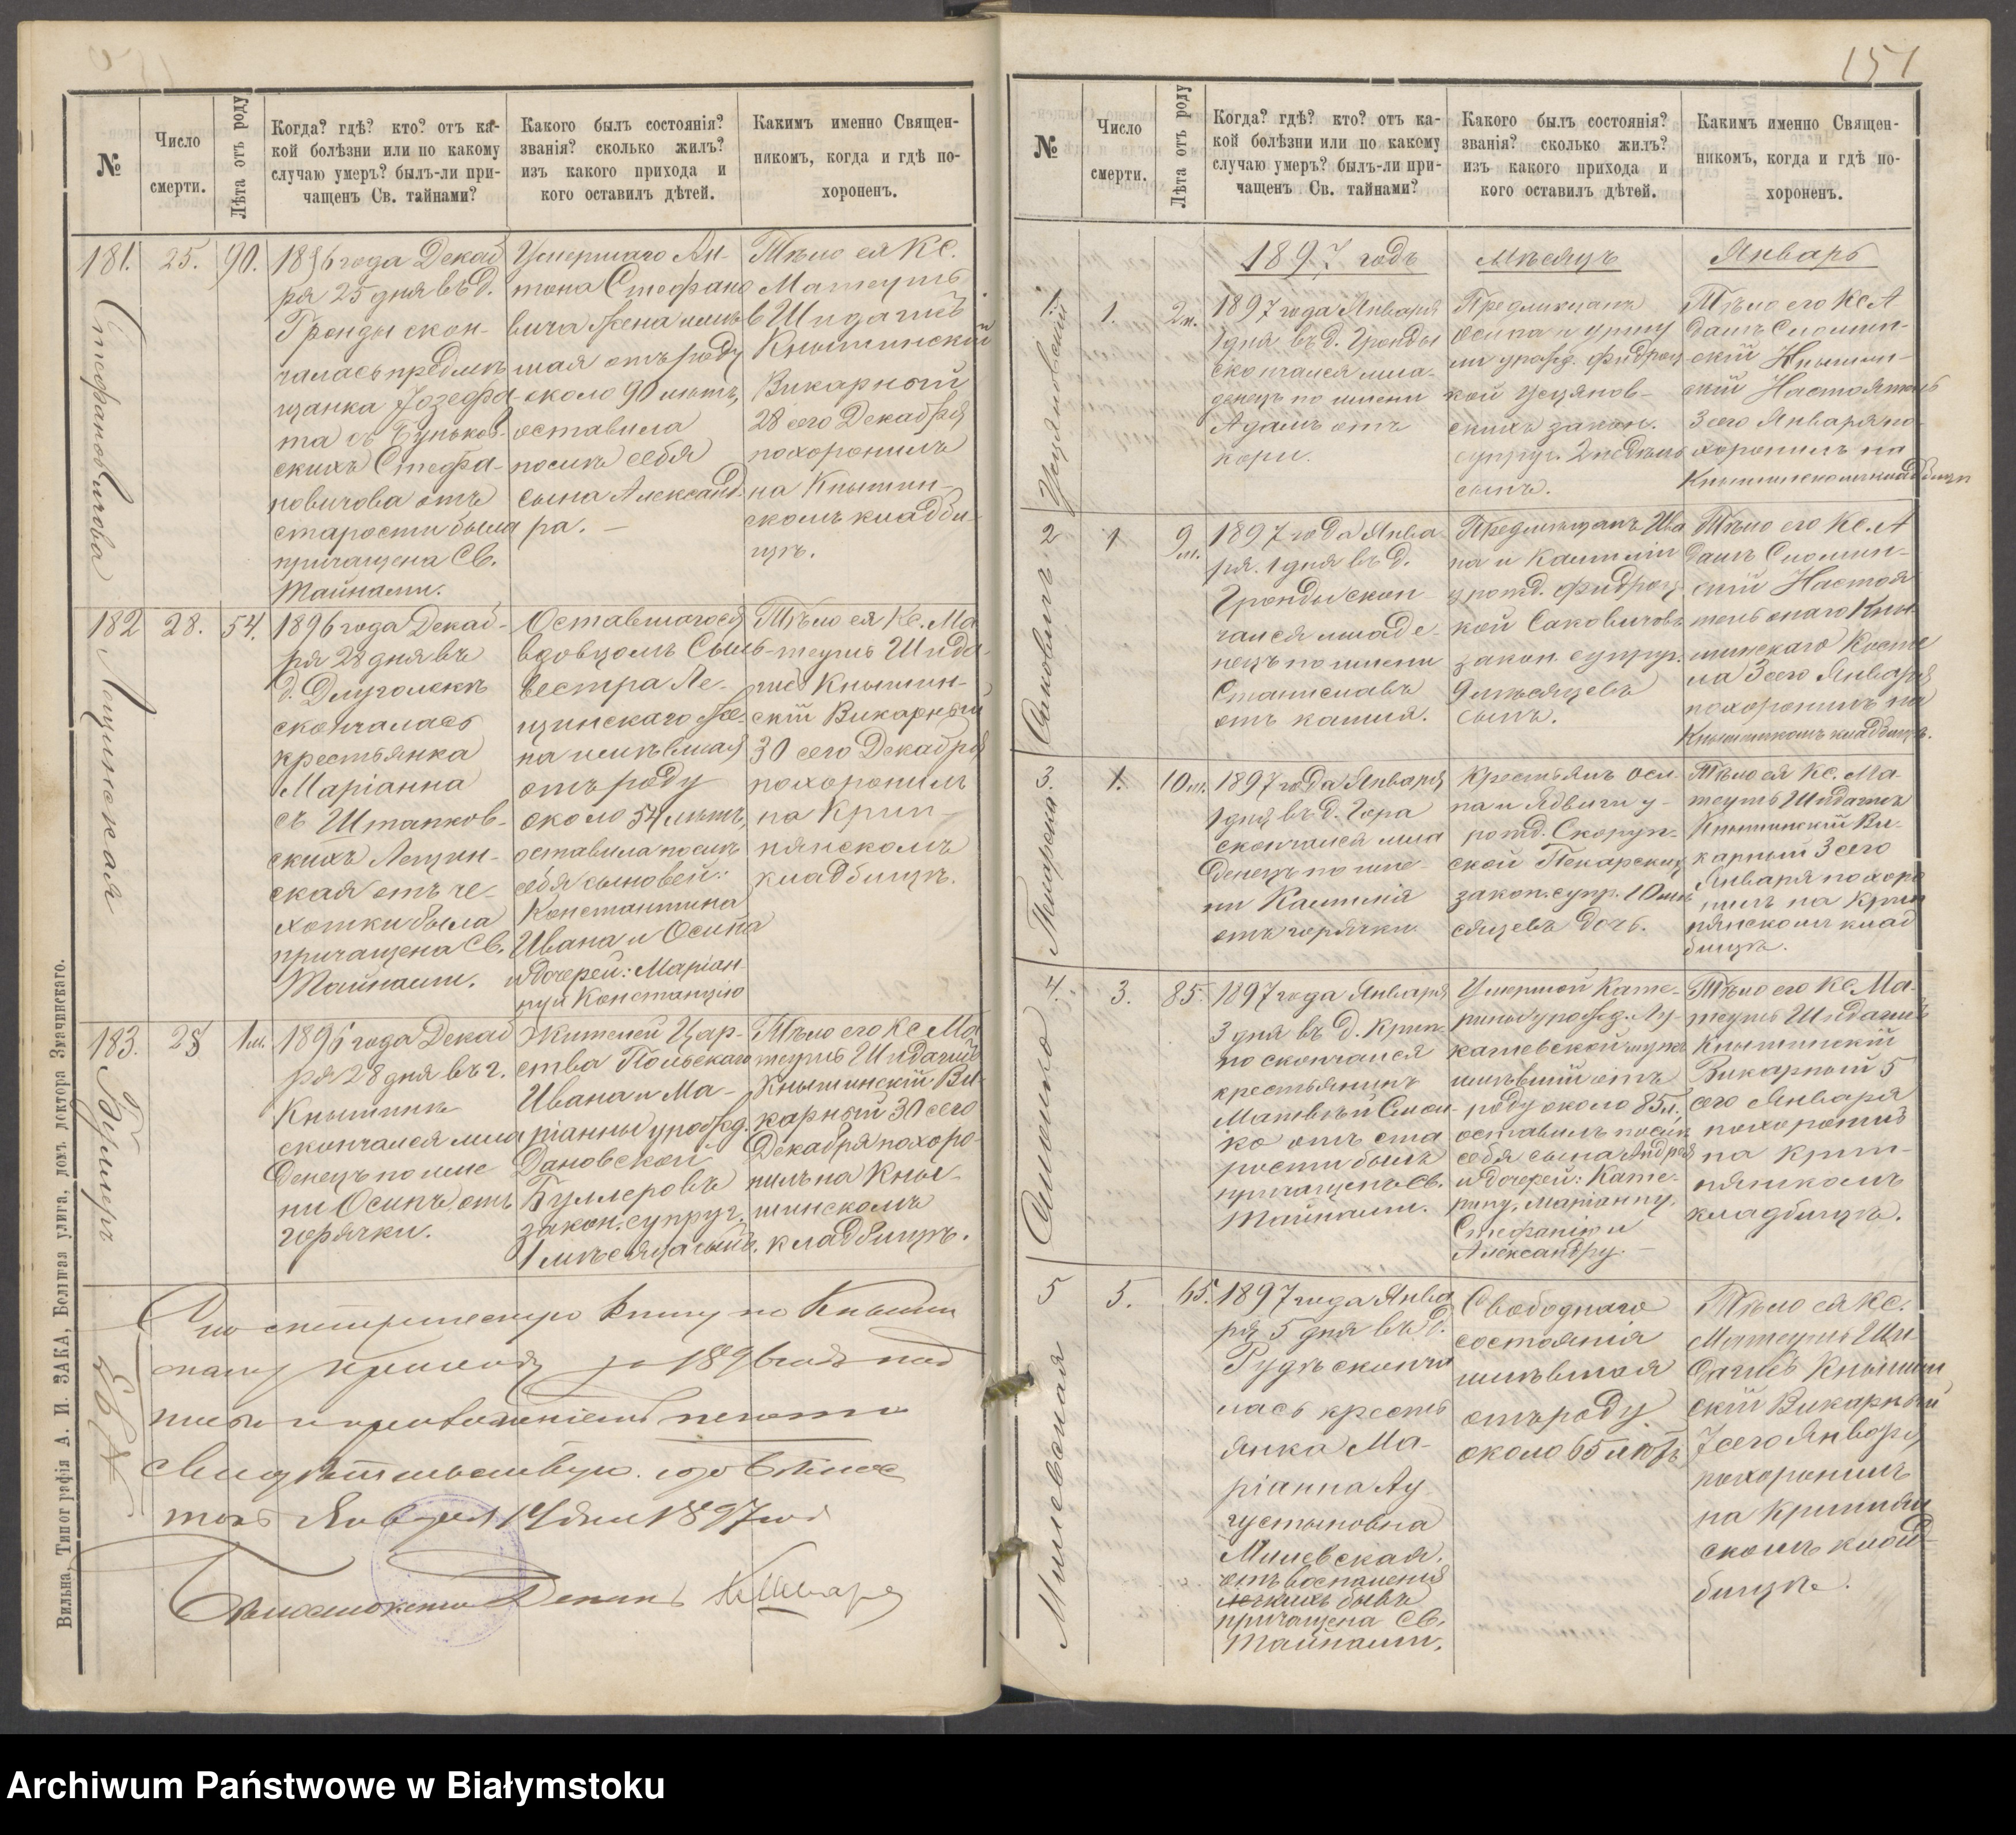 №
Число
смерти.
Лѣта отъ роду
Когда? гдѣ? кто? отъ ка-
кой болѣзни или по какому
случаю умеръ? былъ-ли при-
чащенъ Св. тайнами?
Какого былъ состоянія?
званія? сколько жилъ?
изъ какого прихода и
кого оставилъ дѣтей.
Какимъ именно Священ-
никомъ, когда и гдѣ по-
хороненъ.
181.
Стефановичова
25.
90.
1896 года Декаб
ря 25 дня въ д.
Гронды скон-
чалась предмѣ
щанка Іозефа
та съ Бунько-
скихъ Стефа-
новичова отъ
старости была
причащена Св.
Тайнами.
Умершаго Ан-
тона Стефано
вича жена имѣв
шая отъ роду
около 90 лѣтъ,
оставила
послѣ себя
сына Александ
ра. —
Тѣло ея Кс.
Матеушъ
Шидагисъ
Кнышинскій
Викарный
28 сего Декабря
похоронилъ
на Кнышин-
скомъ кладби-
щѣ.
182
Лещинская
28.
54.
1896 года Декаб-
ря 28 дня въ
д. Длуголенкѣ
скончалась
крестьянка
Маріанна
съ Штанков-
скихъ Лещин-
ская отъ че-
хотки была
причащена Св.
Тайнами.
Оставшагося
вдовцомъ Силь-
вестра Ле-
щинскаго же-
на имѣвшая
отъ роду
около 54 лѣтъ,
оставила послѣ
себя сыновей:
Константина
Ивана и Осипа
и дочерей: Маріан-
ну и Констанцію
Тѣло ея Кс. Ма
теушъ Шида-
гисъ Кнышин-
скій Викарный
30 сего Декабря
похоронилъ
на Крип-
нянскомъ
кладбищѣ.
183.
Буллеръ
28
1 м.
1896 года Декаб
ря 28 дня въ г.
Кнышинѣ
скончался мла
денецъ по име
ни Осипъ отъ
горячки.
Жителей Цар-
ства Польскаго
Ивана и Ма-
ріанны урожд.
Дановской
Буллеровъ
закон. супруг.
1 мѣсяца сынъ.
Тѣло его Кс. Ма
теушъ Шидагисъ
Кнышинскій Ви-
карный 30 сего
Декабря похоро
нилъ на Кны-
шинскомъ
кладбищѣ.
за 1896 годъ
Января 14 дня 1897 года
Деканъ
Вильна, Типографія А. И. ЗАКА, Большая улица, домъ доктора Значинскаго.
151
№
Число
смерти.
Лѣта отъ роду
Когда? гдѣ? кто? отъ ка-
кой болѣзни или по какому
случаю умеръ? былъ-ли при-
чащенъ Св. тайнами?
Какого былъ состоянія?
званія? сколько жилъ?
изъ какого прихода и
кого оставилъ дѣтей.
Какимъ именно Священ-
никомъ, когда и гдѣ по-
хороненъ.
1897 годъ Мѣсяцъ Январь
1.
Усцяновскій
1.
2 н.
1897 года Января
1 дня въ д. Гронды
скончался мла-
денецъ по имени
Адамъ отъ
кори.
Предмѣщанъ
Осипа и
урожд. Фидрыц
кой Усцянов-
скихъ закон.
супруг. 2 недѣль
сынъ.
Тѣло его Кс. А
дамъ Сломин-
скій Кнышин-
скій Настоятель
3 сего Января по-
хоронилъ на
Кнышинскомъ кладбищѣ
2
Саковичъ
1
9 м.
1897 года Янва
ря 1 дня въ д.
Гронды скон-
чался младе-
нецъ по имени
Станиславъ
отъ кашля.
Предмѣщанъ Ива
на и Камиліи
урожд. Фидрыц
кой Саковичовъ
закон. супруг.
9 мѣсяцевъ
сынъ.
Тѣло его Кс. А
дамъ Сломин-
скій Настоя
тель онаго Кны
шинскаго Косте
ла 3 сего Января
похоронилъ на
Кнышинскомъ кладбищѣ.
3.
Пекарская
1.
10 м.
1897 года Января
1 дня въ д. Гора
скончался мла
денецъ по име-
ни Камилія
отъ горячки
Крестьянъ Оси-
па и Ядвиги у-
рожд. Скоруп-
ской Пекарскихъ
закон. супр. 10 мѣ
сяцевъ дочь.
Тѣло ея Кс. Ма-
теушъ Шидагисъ
Кнышинскій Ви-
карный 3 сего
Января похоро
нилъ на Крип
нянскомъ клад
бищѣ.
4.
3.
85.
1897 года Января
3 дня въ д. Крип
но скончался
крестьянинъ
Матвѣй
ко отъ ста
рости былъ
причащенъ Св.
Тайнами.
Умершей Кате-
рины урожд. Лу-
кашевской мужъ
имѣвшій отъ
роду около 85 л.,
оставилъ послѣ
себя сына Андрея
и дочерей: Кате-
рину, Маріанну,
Стефанію и
Александру. —
Тѣло его Кс. Ма-
теушъ Шидагисъ
Кнышинскій
Викарный 5
сего Января
похоронилъ
на Крип-
нянскомъ
кладбищѣ.
5
Милевская
5.
65.
1897 года Янва
ря 5 дня въ д.
Рудѣ сконча
лась кресть
янка Ма-
ріанна Ав
густыновна
Милевская,
отъ воспаленія
легкихъ бывъ
причащена Св.
Тайнами.
Свободнаго
состоянія
имѣвшая
отъ роду
около 65 лѣтъ
Тѣло ея Кс.
Матеушъ Ши
дагисъ Кнышин
скій Викарный
7 сего Января
похоронилъ
на Крипнян
скомъ клад
бищѣ.
Archiwum Państwowe w Białymstoku